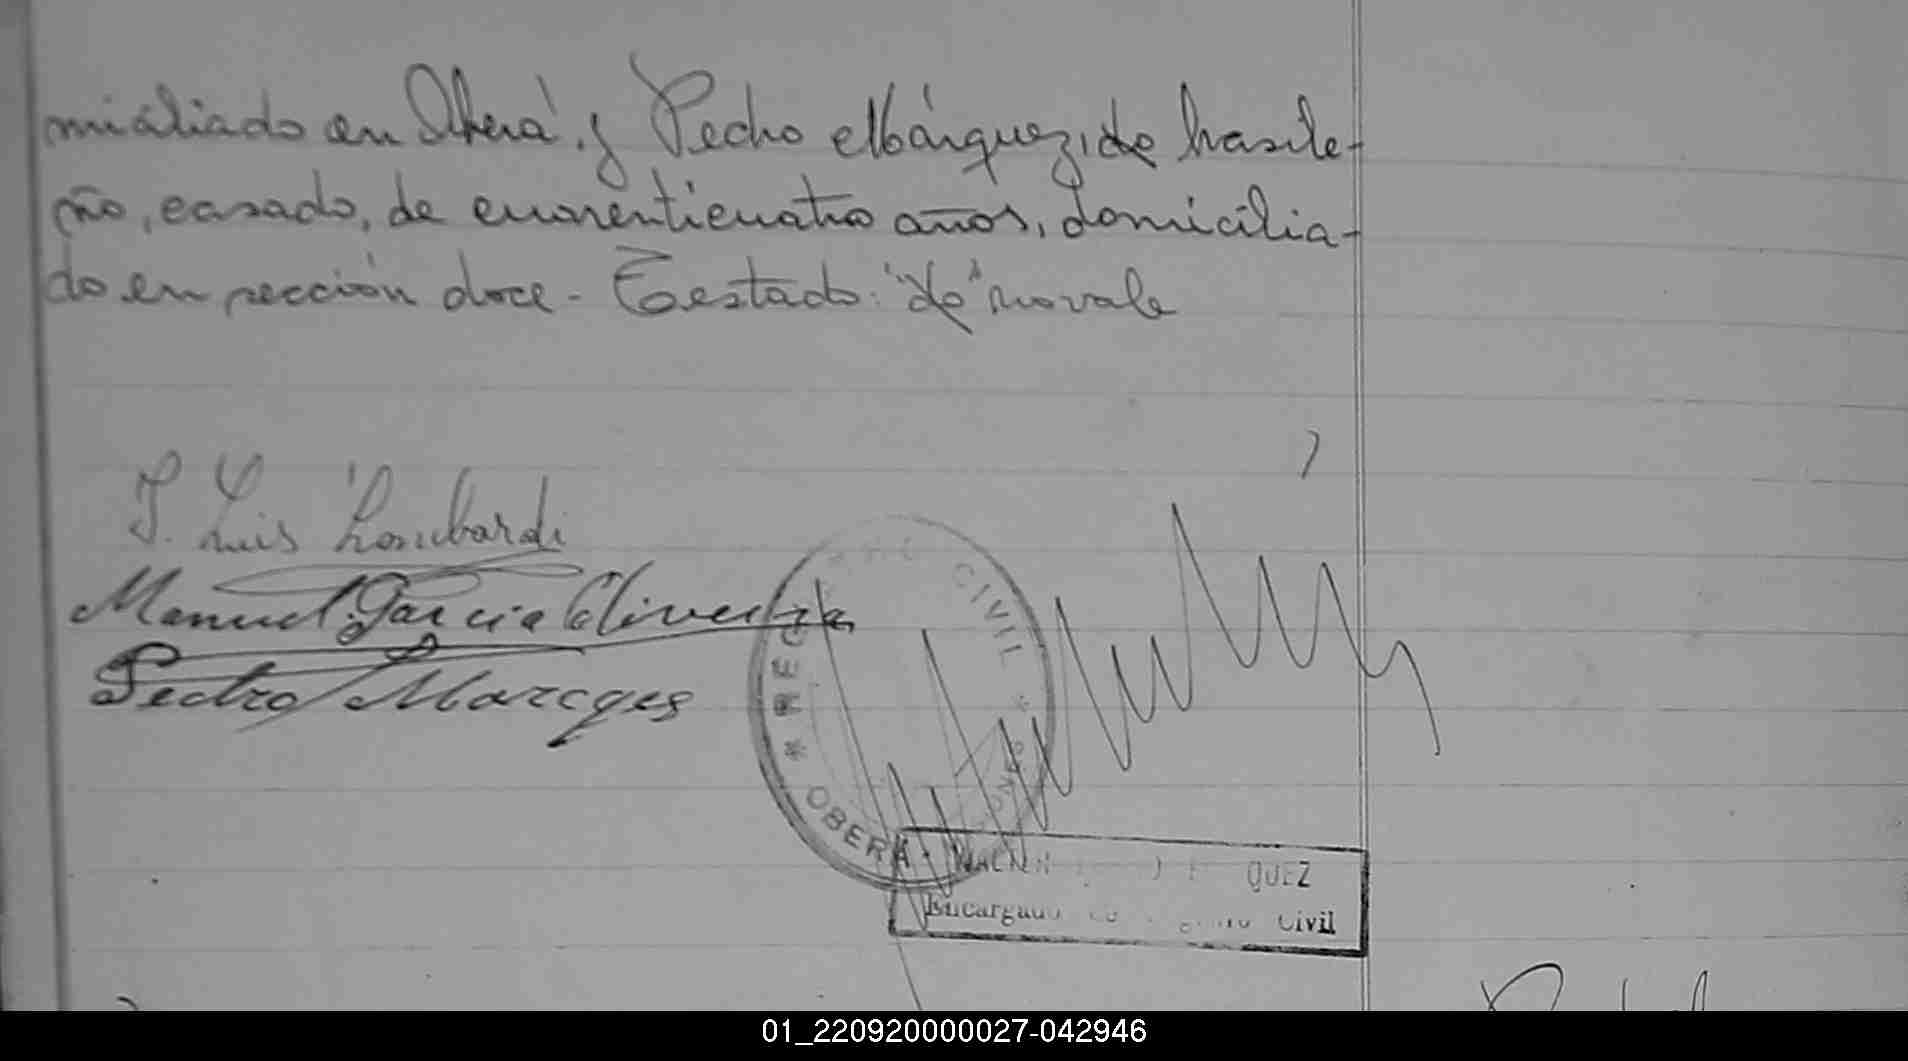 miciliado en Oberá, y Pedro Márquez, de brasile-
ño, casado, de cuarenticuatro años, domicilia-
do en sección doce - Testado: "de" no vale
J. Luis Lombardi
Manuel Garcia Oliveira
Pedro Marcques
REG CIVIL
OBERÁ
QUEZ
Encargado Civil
01_220920000027-042946